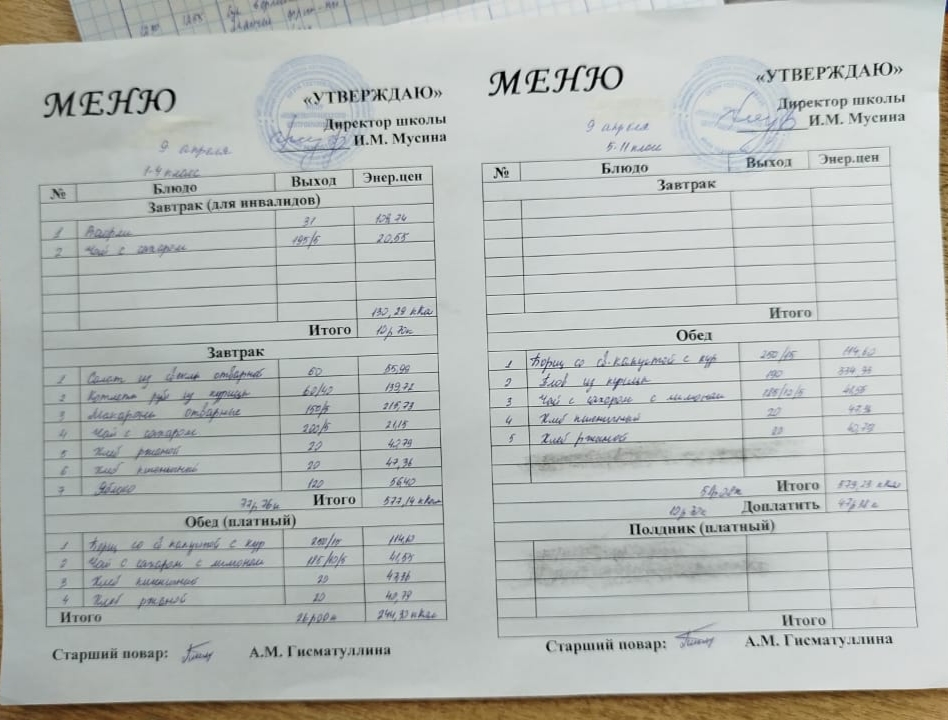 МЕНЮ
«УТВЕРЖДАЮ»
Директор школы
И.М. Мусина
9 апреля
1-4 класс
№ Блюдо Выход Энер.цен
Завтрак (для инвалидов)
1 Вафли 31 109,74
2 Чай с сахаром 195/5 20,55
130,29 кКал
Итого 10р 70к
Завтрак
1 Салат из свеклы отварной 60 55,99
2 Котлета руб из курицы 60/40 139,72
3 Макароны отварные 150/5 215,73
4 Чай с сахаром 200/5 21,15
5 Хлеб ржаной 20 40,79
6 Хлеб пшеничный 20 47,36
7 Яблоко 120 56,40
77р, 76к Итого 577,14 кКал
Обед (платный)
1 Борщ со св капустой с кур 250/15 114,60
2 Чай с сахаром с лимоном 185/10/5 41,55
3 Хлеб пшеничный 20 47,36
4 Хлеб ржаной 20 40,79
Итого 26р00к 244,30 кКал
Старший повар: А.М. Гисматуллина
МЕНЮ
«УТВЕРЖДАЮ»
Директор школы
И.М. Мусина
9 апреля
5-11 класс
№ Блюдо Выход Энер.цен
Завтрак
Итого
Обед
1 Борщ со св. капустой с кур 250/15 114,60
2 Плов из курицы 190 334,93
3 Чай с сахаром с лимоном 41,55
4 Хлеб пшеничный 20 47,36
5 Хлеб ржаной 20 40,79
Итого 579,23 кКал
10р 70к Доплатить
Полдник (платный)
Итого
Старший повар: А.М. Гисматуллина